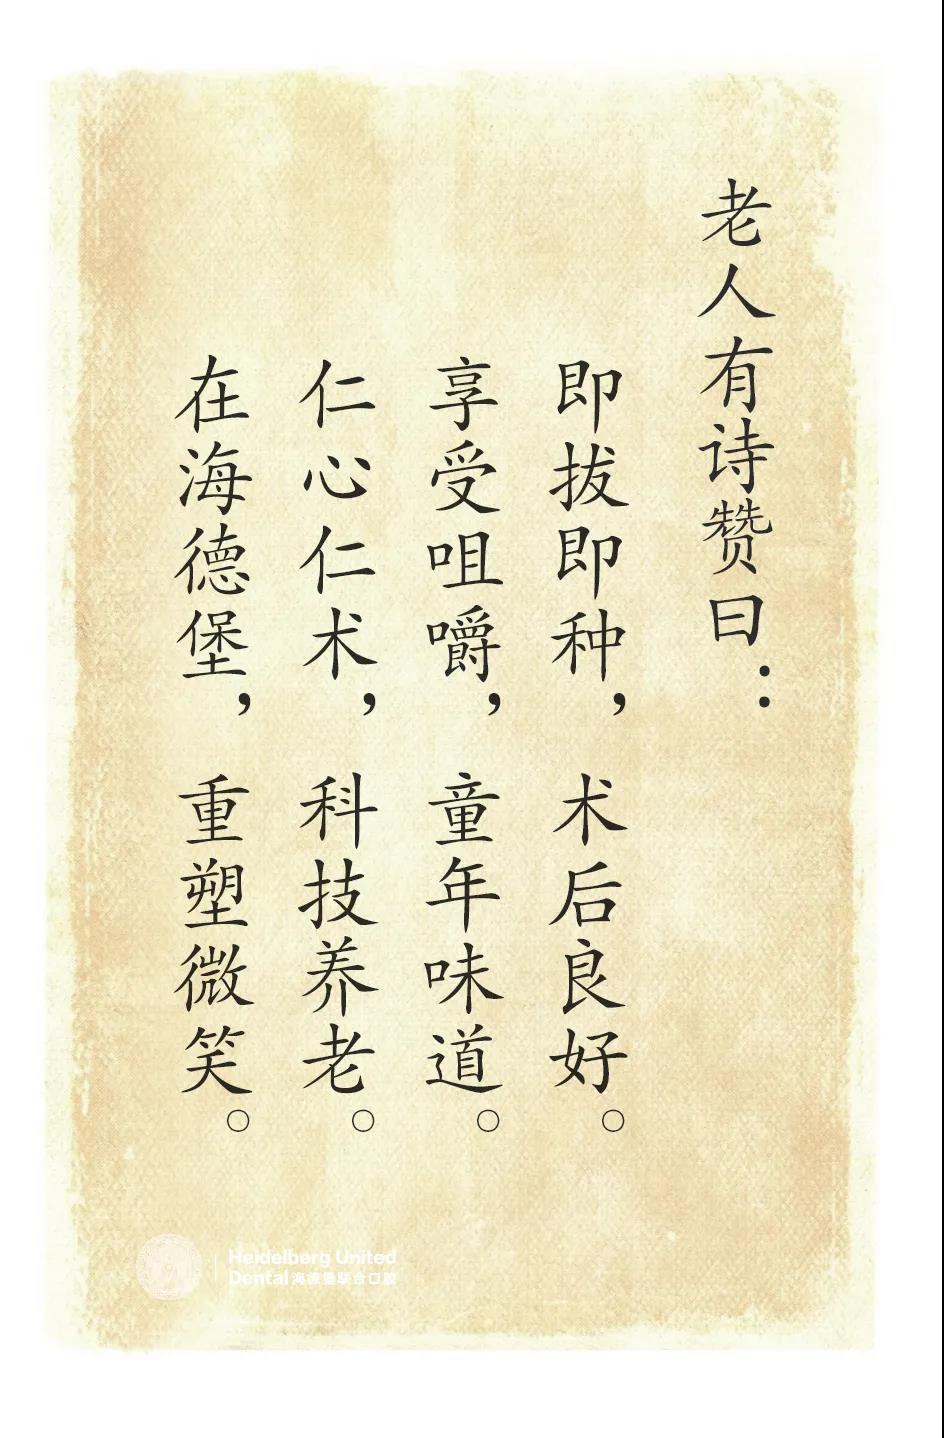 老人有诗赞曰：
即拔即种，术后良好。
享受咀嚼，童年味道。
仁心仁术，科技养老。
在海德堡，重塑微笑。
Heidelberg United
Dental 海德堡联合口腔